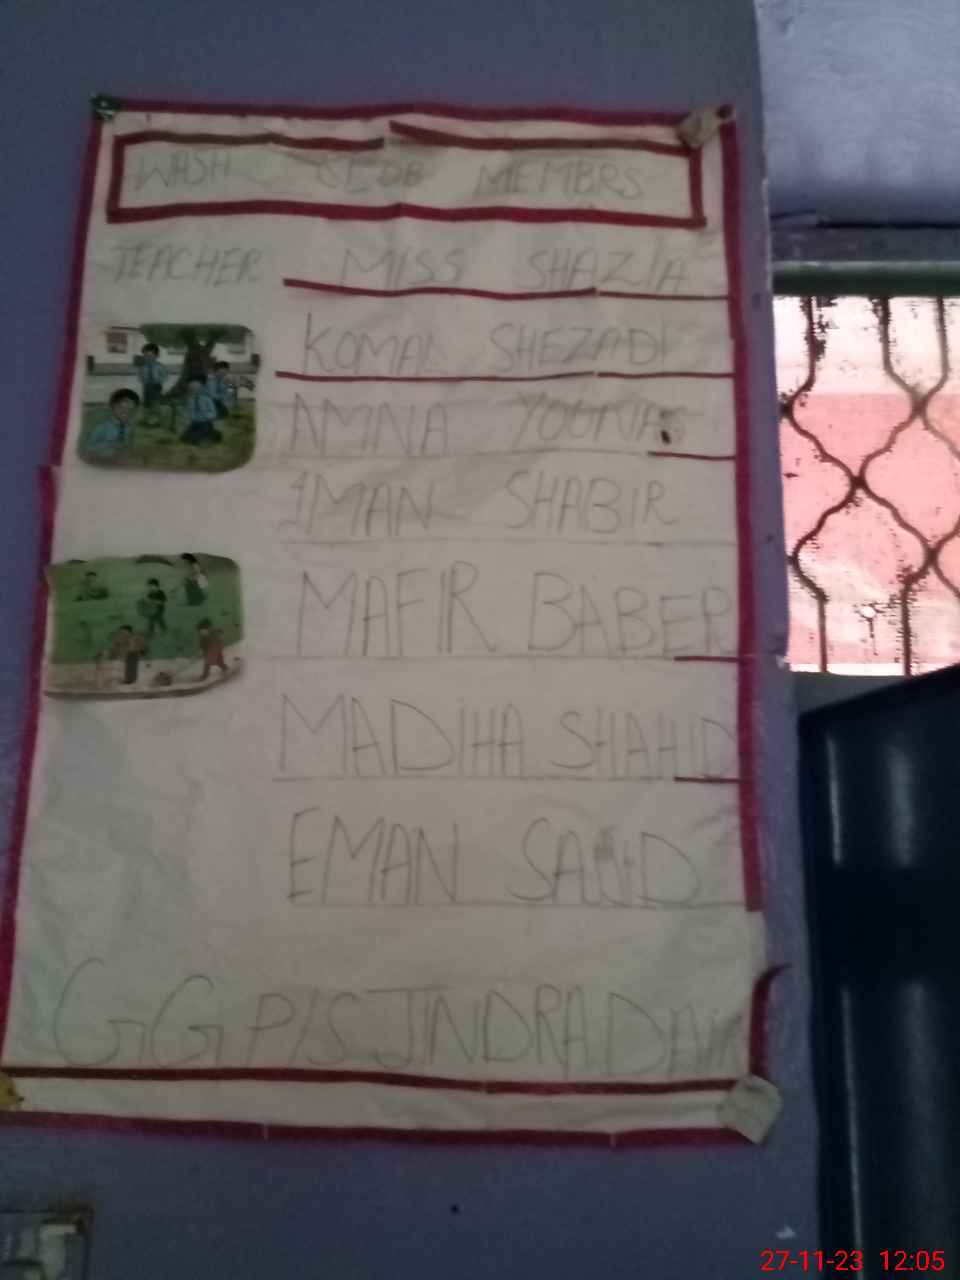 WASH CLUB MEMBRS
TEACHER MISS SHAZIA
KOMAL SHEZADI
AMNA YOUNAS
IMAN SHABIR
MAFIR BABER
MADIHA SHAHID
EMAN
GGP/S JINDRA
27-11-23 12:05